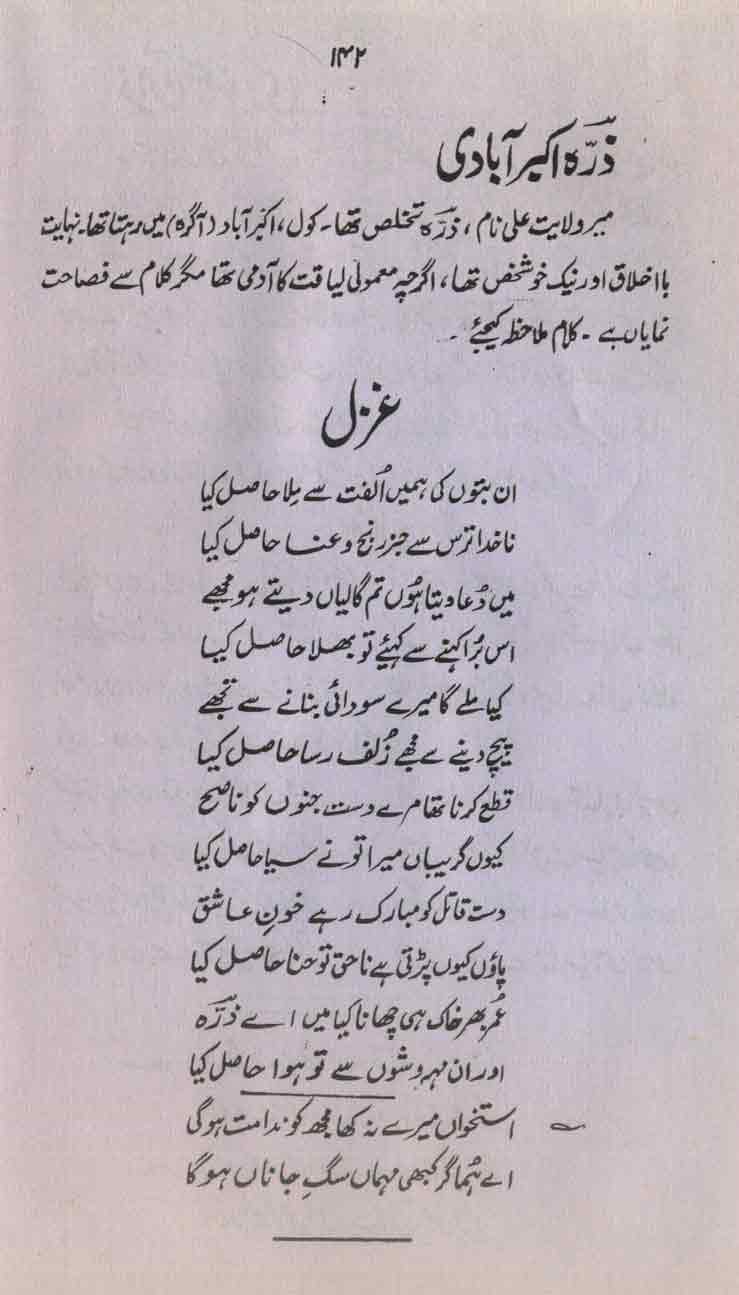 ۱۴۲
ذرّہ اکبر آبادی
میر ولایت علی نام، ذرّہ تخلص تھا۔ کول، اکبر آباد (آگرہ) میں رہتا تھا۔ نہایت
با اخلاق اور نیک خو شخص تھا، اگرچہ معمولی لیاقت کا آدمی تھا مگر کلام سے فصاحت
نمایاں ہے۔ کلام ملاحظہ کیجئے۔
غزل
ان بتوں کی ہمیں اُلفت سے مِلا حاصل کیا
ناخدا ترس سے جز رنج و عنا حاصل کیا
میں دُعا دیتا ہُوں تم گالیاں دیتے ہو مجھے
اس بُرا کہنے سے کہئے تو بھلا حاصل کیا
کیا ملے گا میرے سودائی بنانے سے تجھے
پیچ دینے سے مجھے زُلف رسا حاصل کیا
قطع کرنا تھا مرے دست جنوں کو ناصح
کیوں گریباں میرا تو نے سیا حاصل کیا
دست قاتل کو مبارک رہے خونِ عاشق
پاؤں کیوں پڑتی ہے ناحق تو حنا حاصل کیا
عُمر بھر خاک ہی چھانا کیا میں اے ذرّہ
اور ان مہروشوں سے تو ہوا حاصل کیا
؎ استخواں میرے نہ کھا مجھ کو ندامت ہوگی
اے ہُما گر کبھی مہماں سگِ جاناں ہوگا